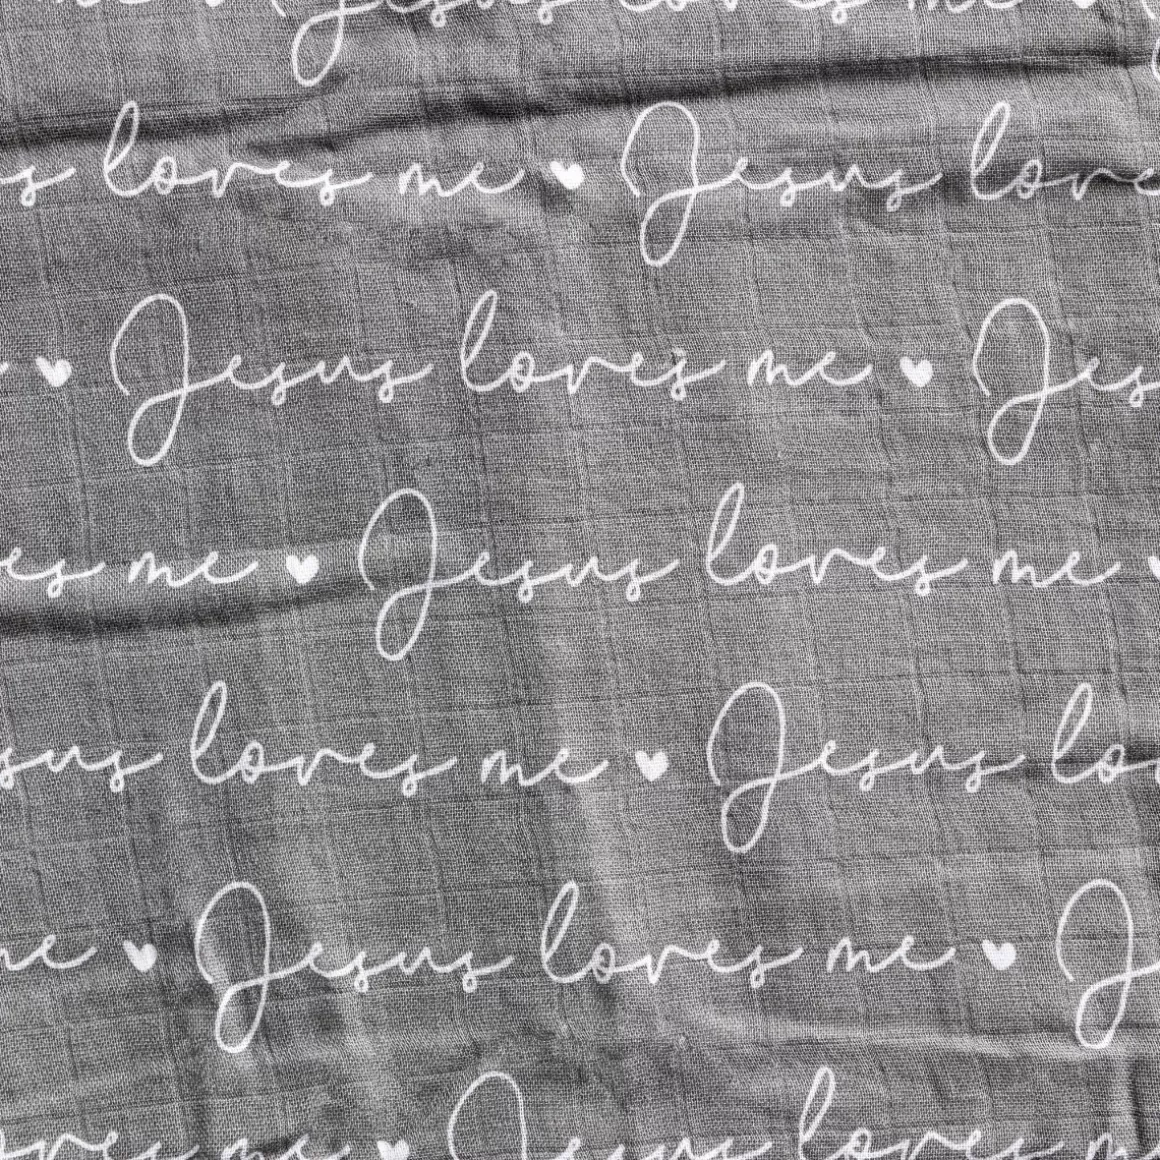 Jesus loves me
s loves me ♥ Jesus love
♥ Jesus loves me ♥ Jes
es me ♥ Jesus loves me ♥
sus loves me ♥ Jesus lo
me ♥ Jesus loves me ♥ J
oves me ♥ Jesus loves m